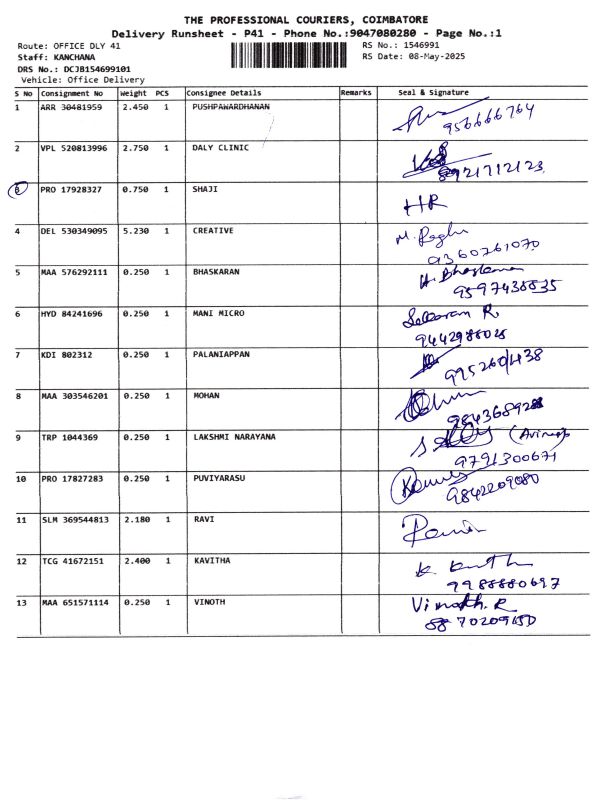 THE PROFESSIONAL COURIERS, COIMBATORE
Delivery Runsheet - P41 - Phone No.:9047080280 - Page No.:1
Route: OFFICE DLY 41 RS No.: 1546991
Staff: KANCHANA RS Date: 08-May-2025
DRS No.: DCJB154699101
Vehicle: Office Delivery
S No Consignment No Weight PCS Consignee Details Remarks Seal & Signature
1 ARR 30481959 2.450 1 PUSHPAWARDHANAN
956666764
2 VPL 520813996 2.750 1 DALY CLINIC
8921712123
3 PRO 17928327 0.750 1 SHAJI HR
4 DEL 530349095 5.230 1 CREATIVE M. Raghu
9360261070
5 MAA 576292111 0.250 1 BHASKARAN H. Bhaskaran
9597438535
6 HYD 84241696 0.250 1 MANI MICRO R.
9442988028
7 KDI 802312 0.250 1 PALANIAPPAN
9952601438
8 MAA 303546201 0.250 1 MOHAN
9843689288
9 TRP 1044369 0.250 1 LAKSHMI NARAYANA
9791300671
10 PRO 17827283 0.250 1 PUVIYARASU
9842209080
11 SLM 369544813 2.180 1 RAVI
12 TCG 41672151 2.400 1 KAVITHA K.
9988880697
13 MAA 651571114 0.250 1 VINOTH Vinoth. R
8870209150